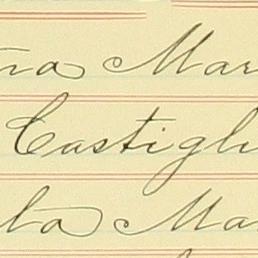 na Mar
Castigli
ta Ma